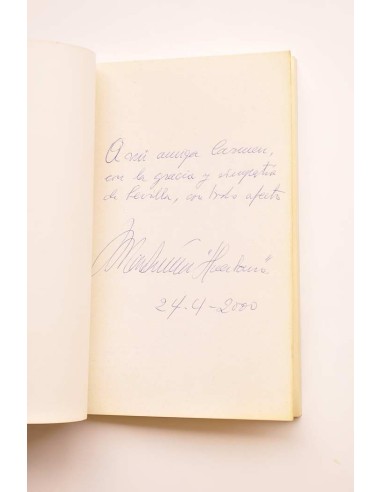 A mi amiga Carmen,
con la gracia y simpatía
de Sevilla, con todo afecto
24-4-2000